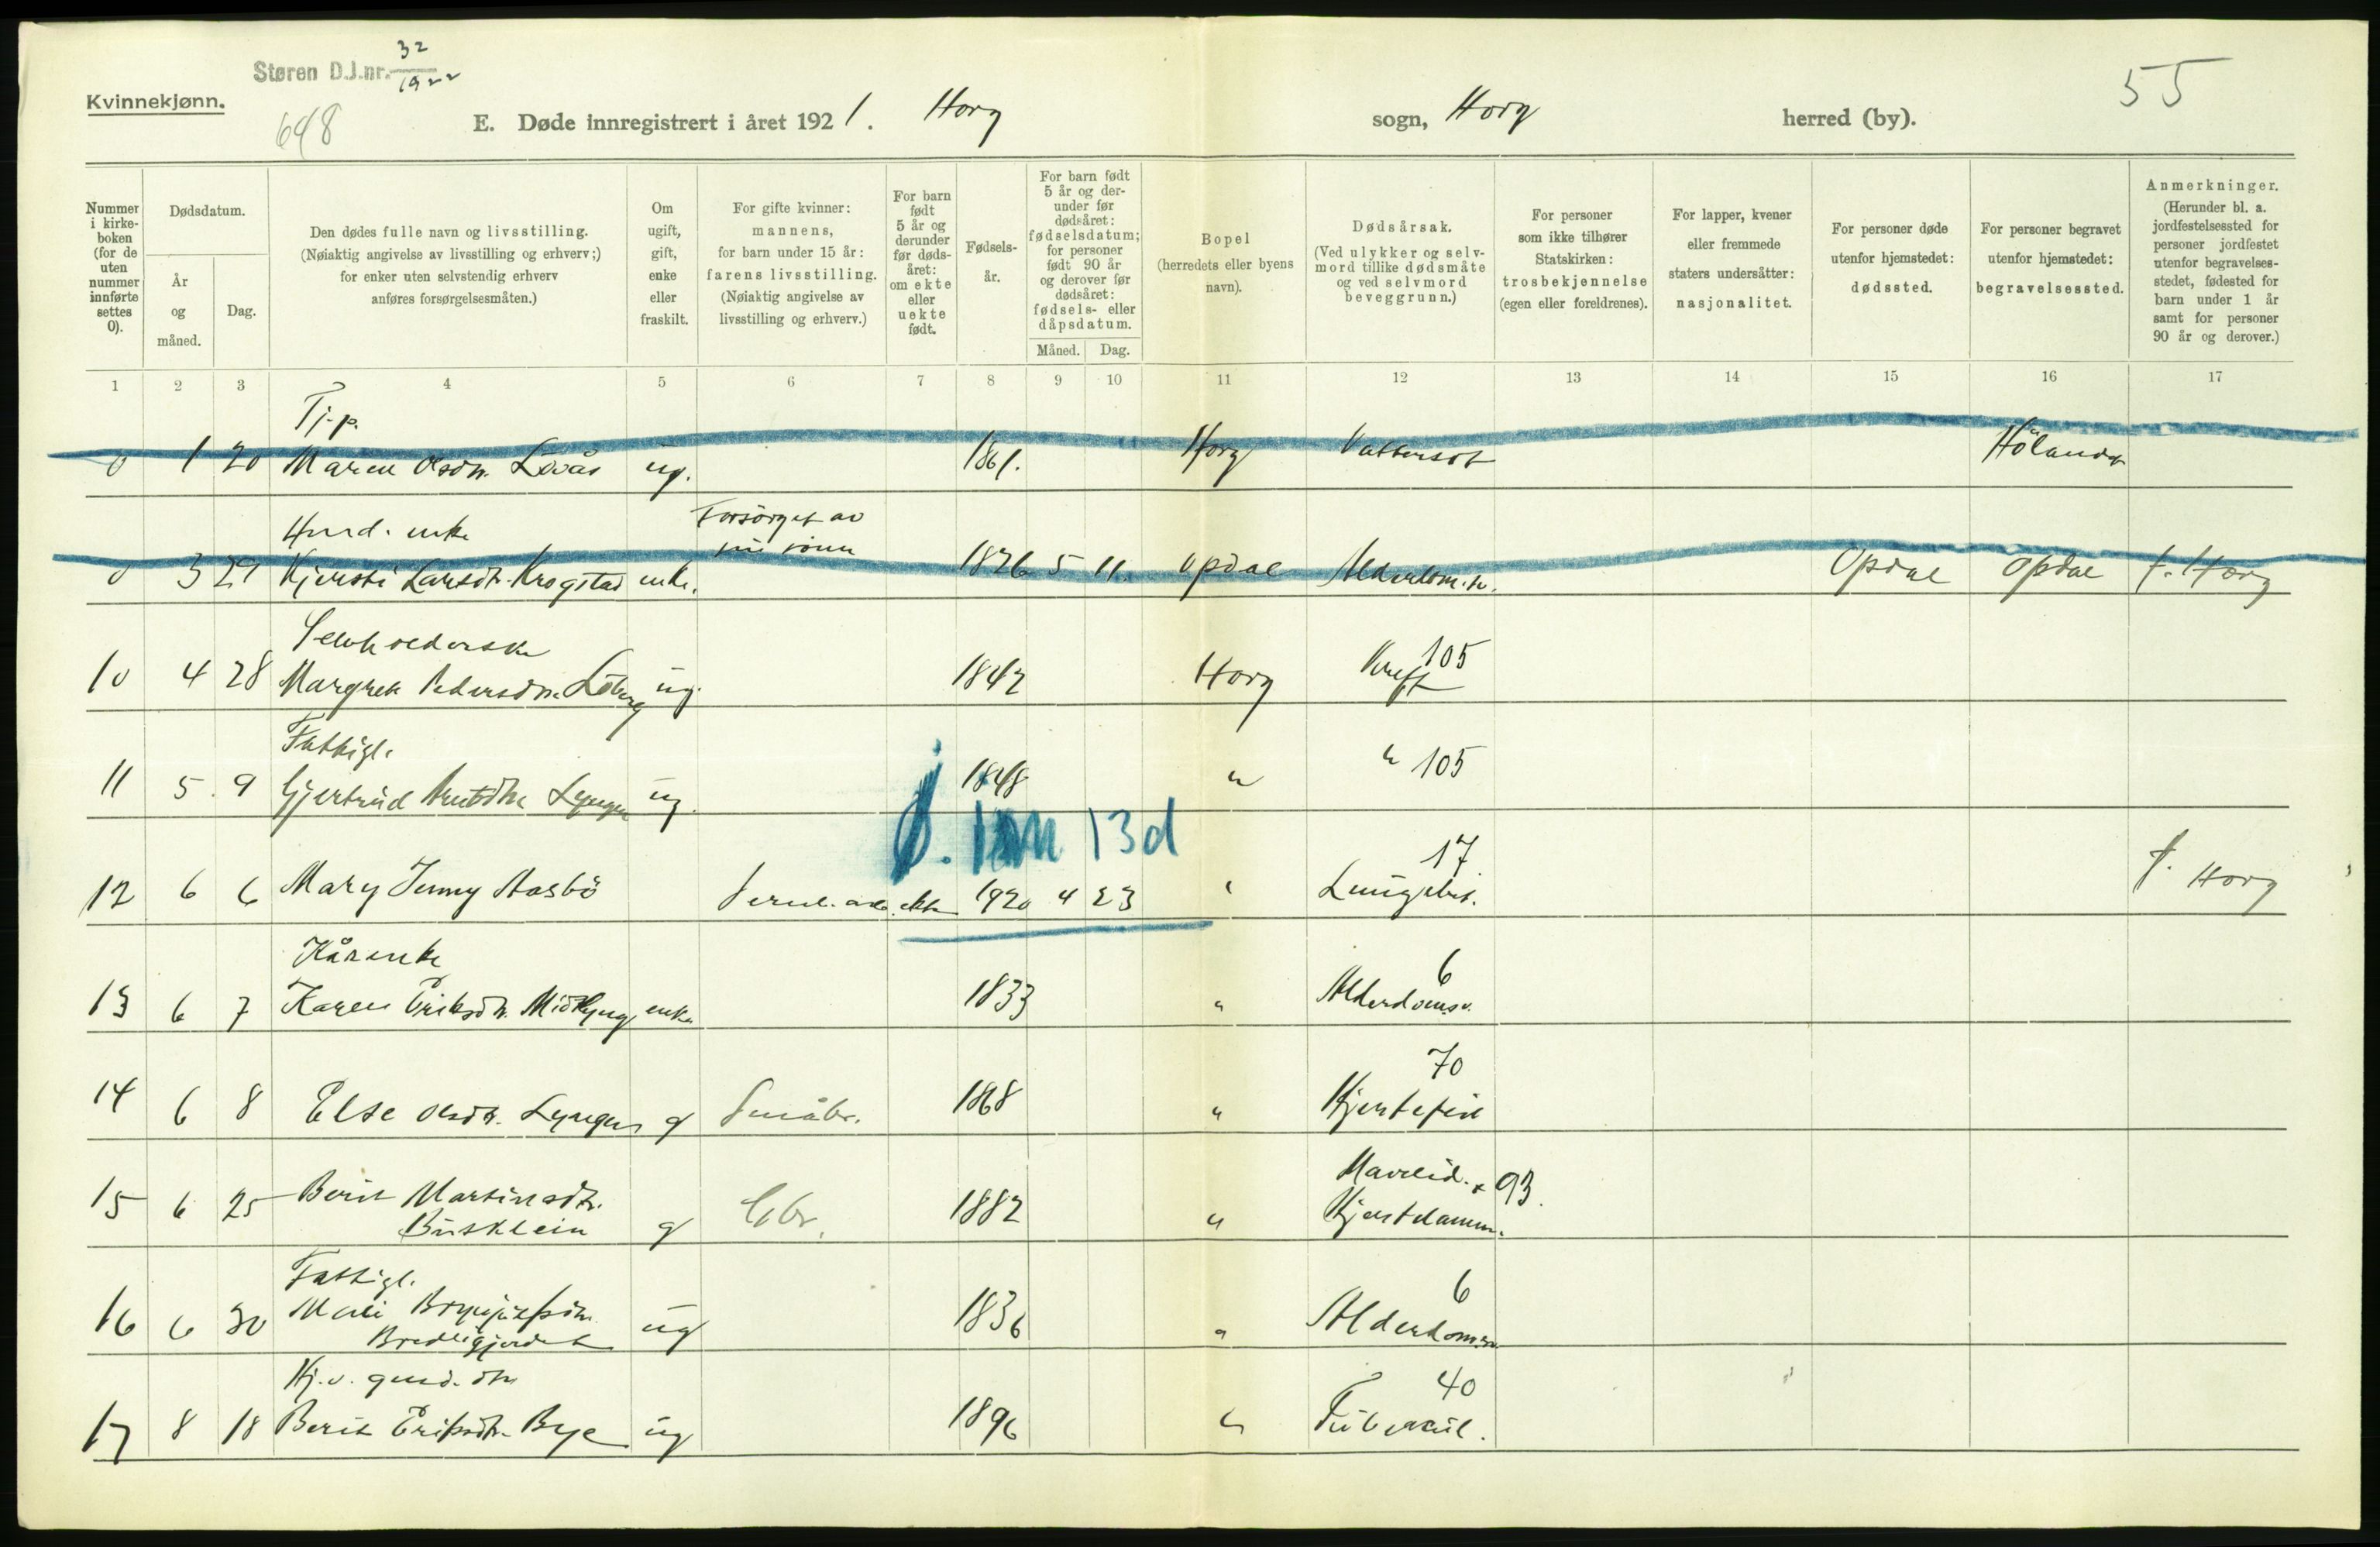 Støren D.J.nr. 32/1922
Kvinnekjønn.
648
E. Døde innregistrert i året 1921. Horg sogn, Horg herred (by).
55
Nummer i kirkeboken (for de uten nummer innførte settes 0).
Dødsdatum.
År og måned.
Dag.
Den dødes fulle navn og livsstilling.
(Nøiaktig angivelse av livsstilling og erhverv;)
for enker uten selvstendig erhverv
anføres forsørgelsesmåten.)
Om ugift, gift, enke eller fraskilt.
For gifte kvinner: mannens, for barn under 15 år: farens livsstilling. (Nøiaktig angivelse av livsstilling og erhverv.)
For barn født 5 år og derunder før dødsåret: om ekte eller uekte født.
Fødselsår.
For barn født 5 år og derunder før dødsåret: fødselsdatum; for personer født 90 år og derover før dødsåret: fødsels- eller dåpsdatum.
Måned. Dag.
Bopel (herredets eller byens navn).
Dødsårsak. (Ved ulykker og selvmord tillike dødsmåte og ved selvmord beveggrunn.)
For personer som ikke tilhører Statskirken: trosbekjennelse (egen eller foreldrenes).
For lapper, kvener eller fremmede staters undersåtter: nasjonalitet.
For personer døde utenfor hjemstedet: dødssted.
For personer begravet utenfor hjemstedet: begravelsessted.
Anmerkninger. (Herunder bl. a. jordfestelsessted for personer jordfestet utenfor begravelsesstedet, fødested for barn under 1 år samt for personer 90 år og derover.)
1 2 3 4 5 6 7 8 9 10 11 12 13 14 15 16 17
Tj.p.
0 1 20 Maren Olsdtr. Løvås ug. 1861. Horg Vattersot Hølandet
enke Forsørget av
sin sønn
0 3 29 Kjersti Larsdtr. Krogstad enke. 1826 5 11. Opdal Alderdom.sv. Opdal Opdal f. Horg
Selvholderske
10 4 28 Margrete Pedersdtr. Løberg ug. 1842 Horg Kreft 105
Fattigl.
11 5 9 Gjertrud Lyngen ug. 1848 " " 105
13d
12 6 6 Mary Jenny Aasbö ekte 1920 4 23 " Lungebet. 17 f. Horg
Kårenke
13 6 7 Karen Eriksdtr. Midtlyng enke 1833 " Alderdomsv. 6
14 6 8 Else Olsdtr. Lyngen g Småbr. 1868 " Hjertefeil 70
15 6 25 Berit Martinsdtr. Buskhein g Gbr. 1882 " Mavelid. + Hjertelamm. 93.
Fattigl.
16 6 30 Mali Brynjulfsdtr. Bredligjerdet ug 1836 " Alderdomsv. 6
Hj.v. gmd. dtr
17 8 18 Berit Eriksdtr. Bye ug 1896 " Tuberkul. 40